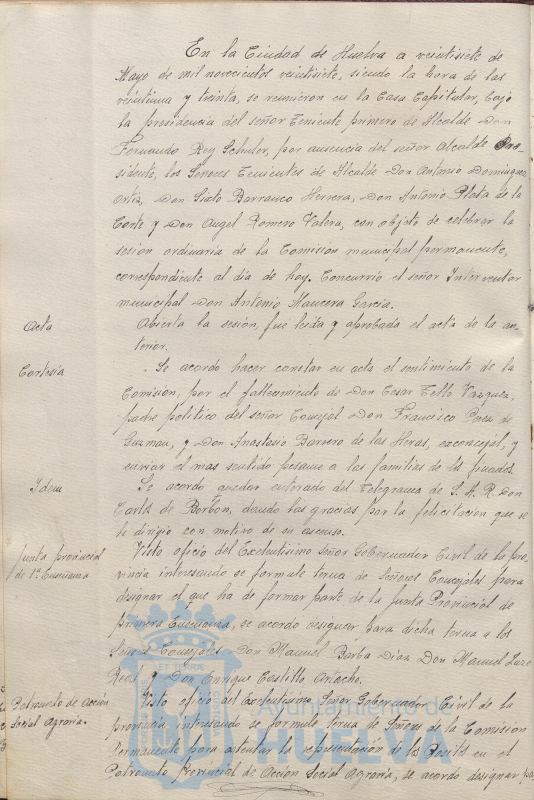 En la Ciudad de Huelva a veintisiete de
Mayo de mil novecientos veintisiete, siendo la hora de las
veintiuna y treinta, se reunieron en la Casa Capitular, bajo
la presidencia del señor Teniente primero de Alcalde Don
Fernando Rey Schuler, por ausencia del señor Alcalde Pre-
sidente, los Señores Tenientes de Alcalde Don Antonio Dominguez
Ortiz, Don Sixto Barranco Herrera, Don Antonio Plata de la
Corte y Don Angel Romero Valera, con objeto de celebrar la
sesion ordinaria de la Comision municipal permanente,
correspondiente al dia de hoy. Concurrió el señor Interventor
municipal Don Antonio Mancera Garcia.
Acta
Abierta la sesión, fue leida y aprobada el acta de la an-
terior.
Cortesia
Se acordó hacer constar en acta el sentimiento de la
Comisión, por el fallecimiento de Don Cesar Tello Vazquez,
padre politico del señor Concejal Don Francisco Perez de
Guzman, y Don Anastasio Barrero de las Heras, exconcejal, y
enviar el mas sentido pesame a las familias de los finados.
Idem
Se acordó quedar enterado del telegrama de S. A. R. Don
Carlos de Borbón, dando las gracias por la felicitacion que se
le dirigio con motivo de su ascenso.
Junta provincial
de 1ª Enseñanza
Visto oficio del Excelentisimo Señor Gobernador Civil de la pro-
vincia interesando se formule terna de Señores Concejales para
designar el que ha de formar parte de la Junta Provincial de
primera Enseñanza, se acordó designar para dicha terna a los
Señores Concejales Don Manuel Barba Diaz Don Manuel
Real y Don Enrique Castillo
Patronato de Acción
Social Agraria.
Visto oficio del Excelentisimo Señor Gobernador Civil de la
provincia interesando se formule terna de Señores de la Comision
Permanente para ostentar la representación de los Positos en el
Patronato Provincial de Acción Social Agraria, se acordo designar pa
Ayuntamiento de
HUELVA